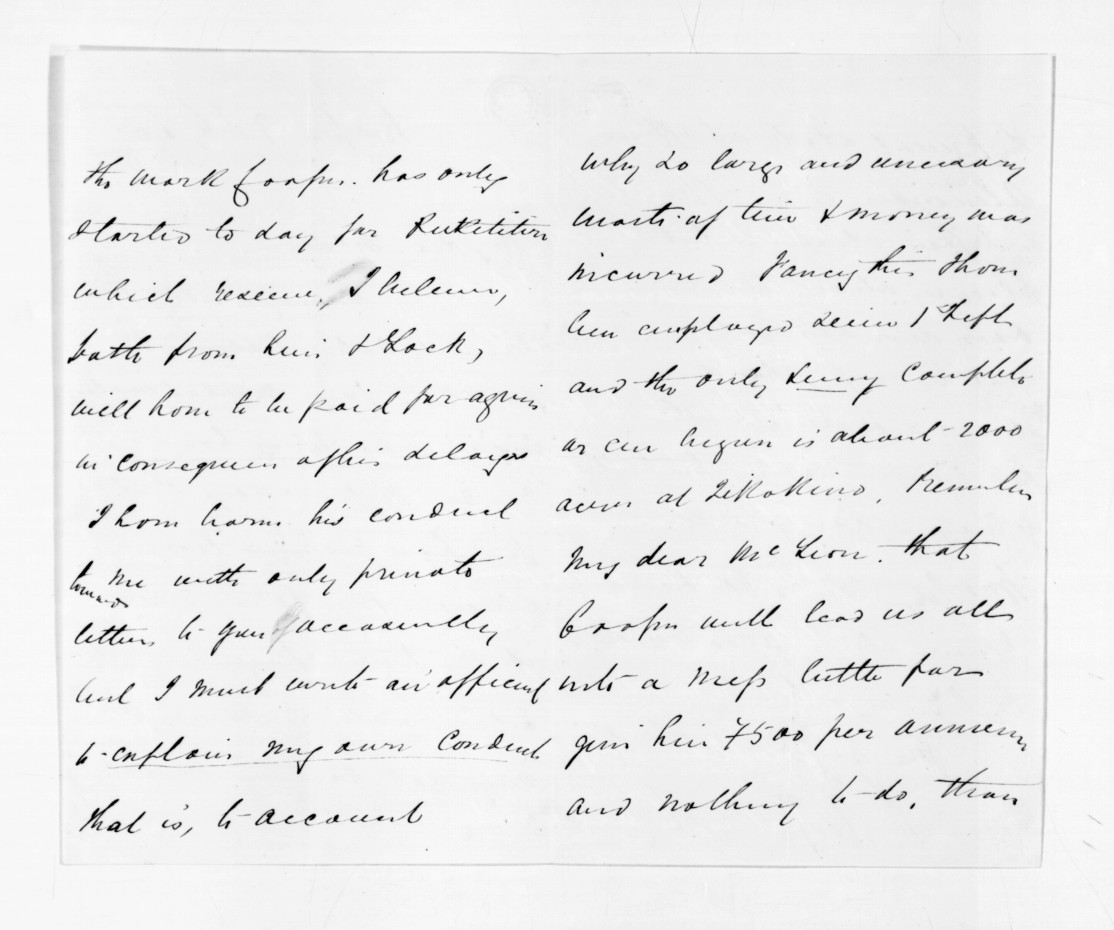 the work Cooper. has only
started to day for Ruketituri
which reserve, I believe,
both from him & Lock,
will have to be paid for again
in consequence of his delays
I have borne his conduct
towards me with only private
letters to you occasionally
but I must write an official
to explain my own conduct
that is, to account
why so large and unnecessary
waste of time & money was
incurred Fancy his
been employed since I left
and the only survey complete
or even begun is about 2000
acres at Tikokino. Remember
My dear McLean. that
Cooper will lead us all
into a mess better far
give him £500 per annum
and nothing to do, than